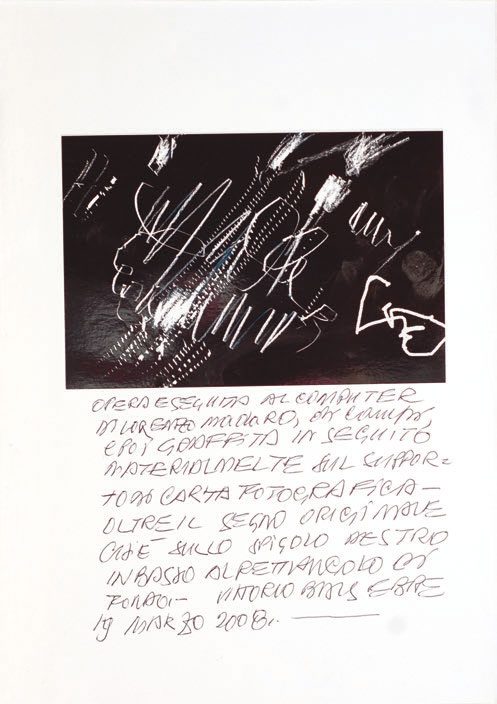 OPERA ESEGUITA AL COMPUTER
DI LORENZO MADARO, DI
E POI GRAFFITA IN SEGUITO
MATERIALMELTE SUL SUPPOR=
TO DI CARTA FOTOGRAFICA –
OLTRE IL SEGNO ORIGINALE
CHE SULLO SPIGOLO DESTRO
IN BASSO AL RETTANGOLO DI
FONDO. –
19 MARZO 2008.